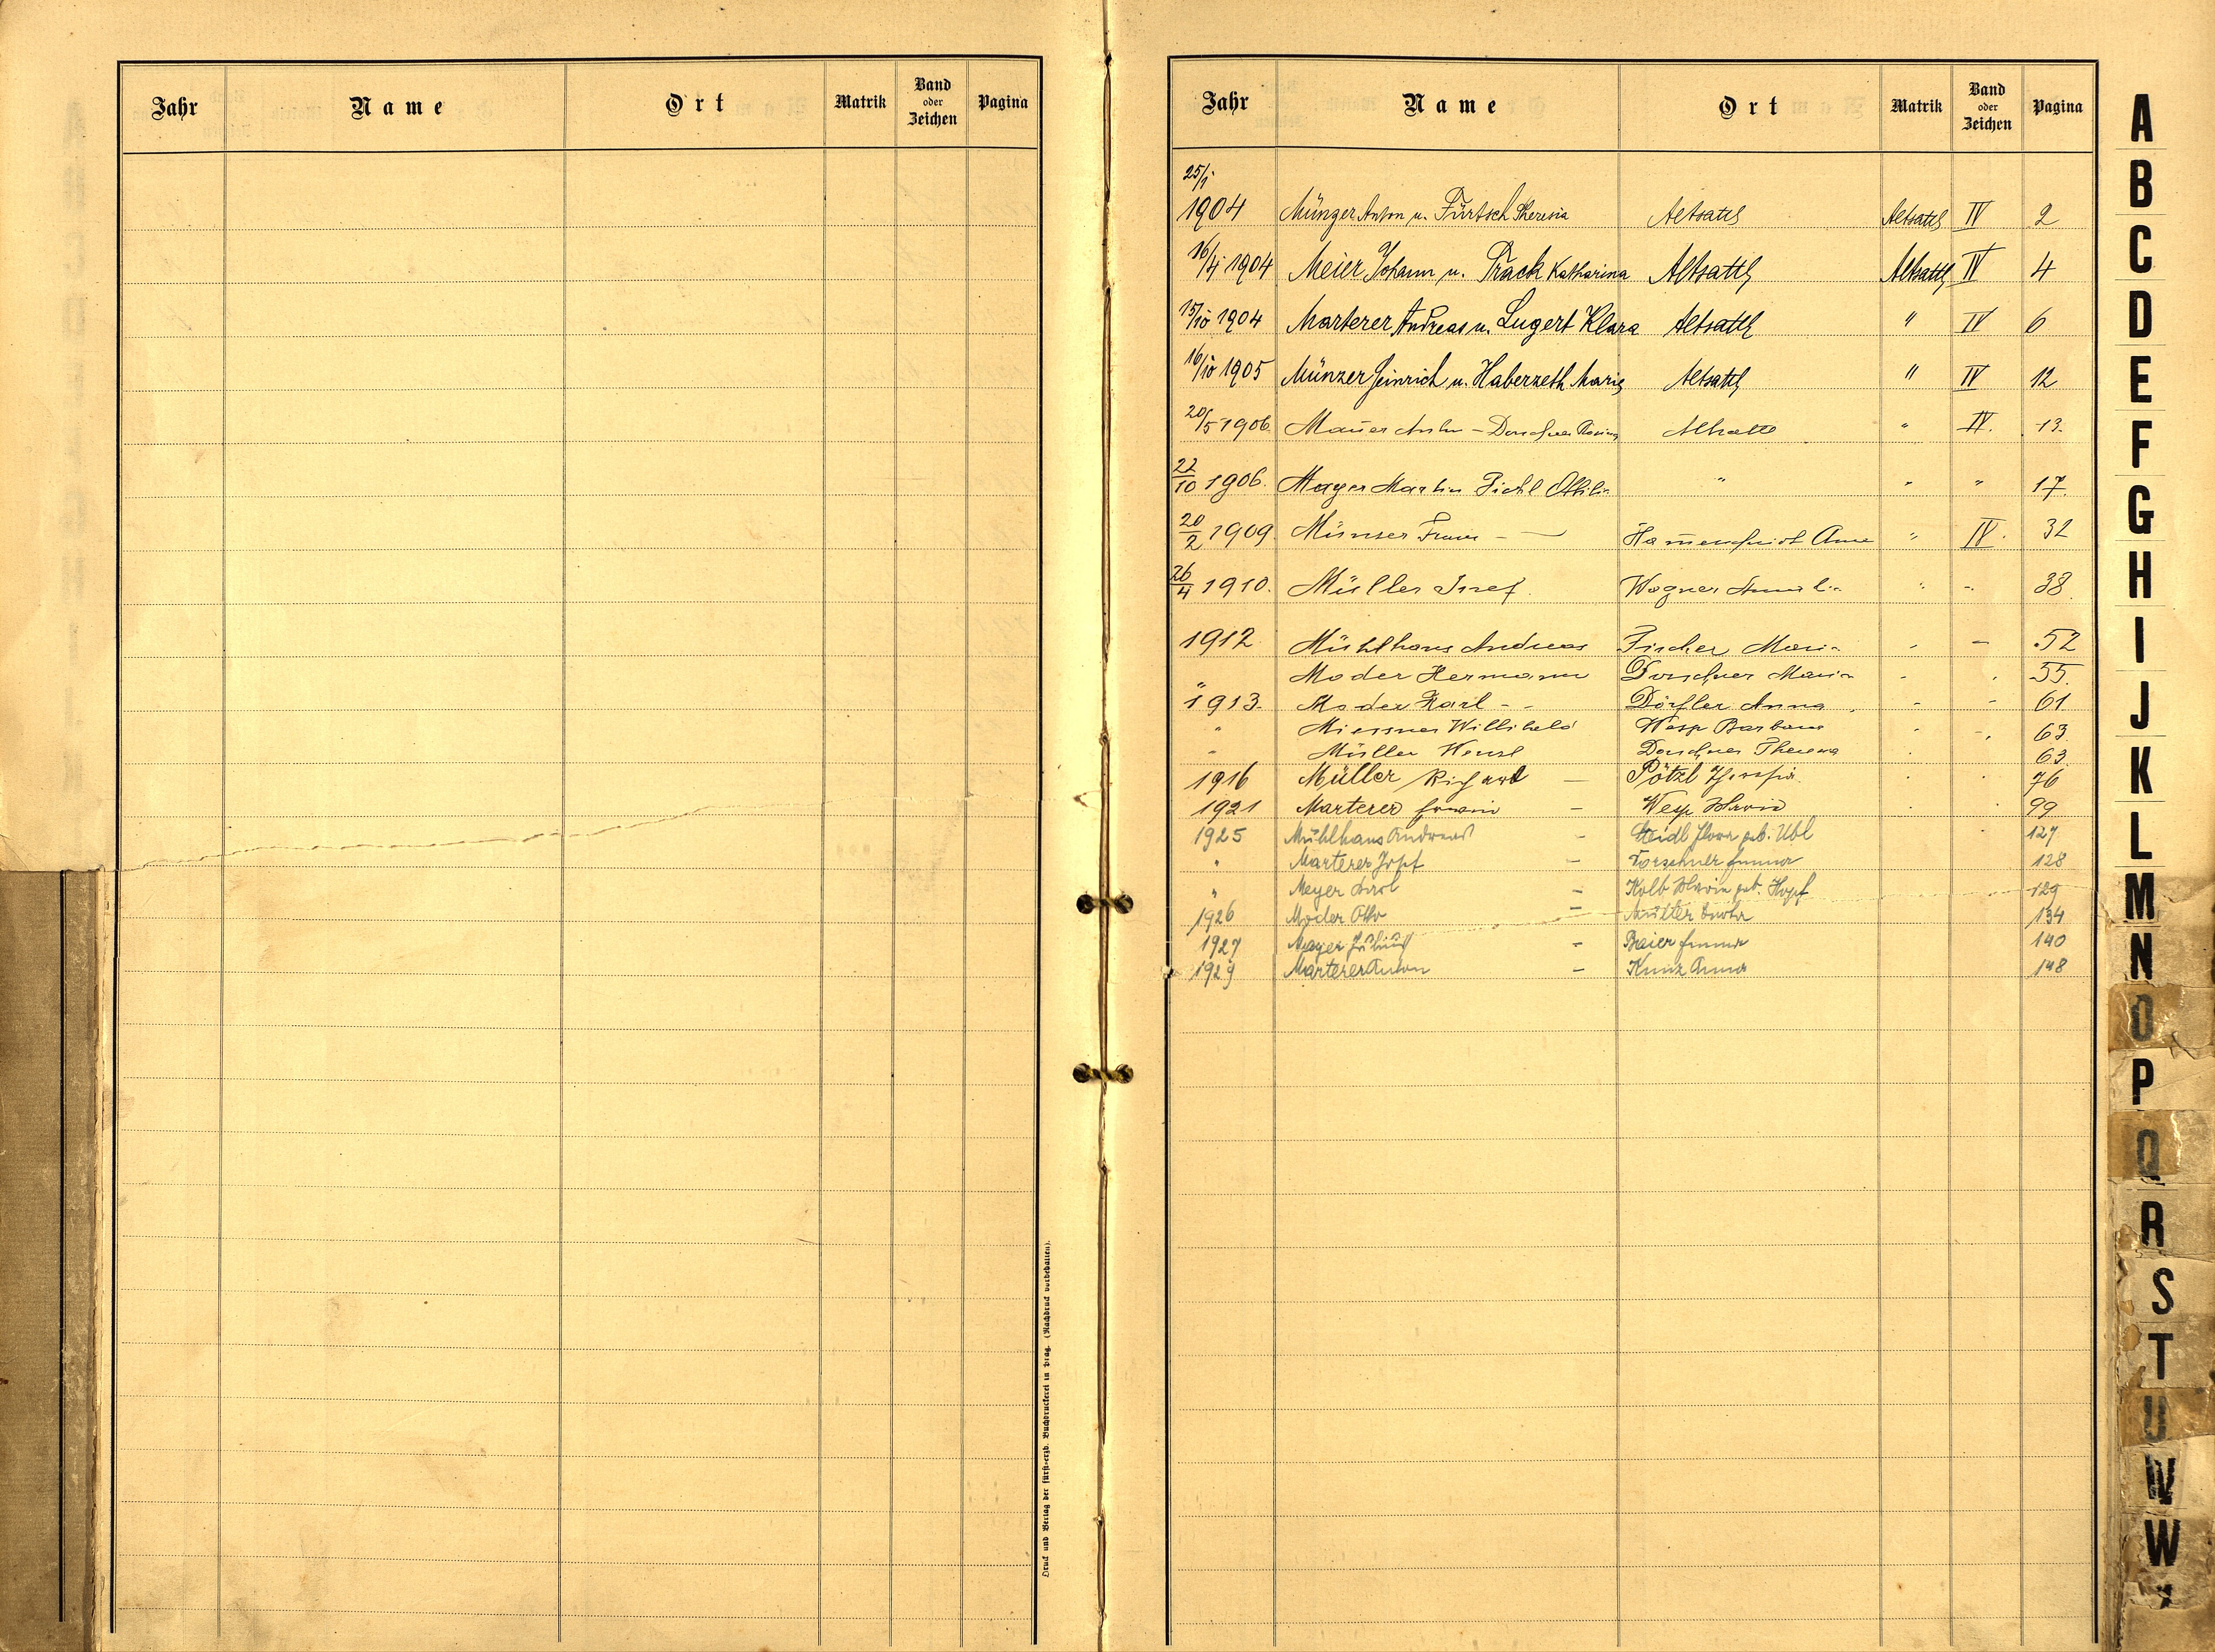 Jahr Name Ort Matrik Band oder Zeichen Pagina
Druck und Verlag der fürst-erzb. Buchdruckerei in Prag. (Nachdruck vorbehalten).
Jahr Name Ort Matrik Band oder Zeichen Pagina
25/1
1904 Münzer Anton u. Fürtsch Theresia Altsattl Altsattl IV 2
16/4 1904 Meier Johann u. Track Katharina Altsattl Altsattl IV 4
15/10 1904 Marterer Andreas u. Lugert Klara Altsattl " IV 6
16/10 1905 Münzer Heinrich u. Haberzeth Marie Altsattl " IV 12
20/5 1906 Mauer Anton - Dorschner Altsattl " IV. 13.
22/10 1906. Mayer Martin Pichl Ottilie " " " 17.
20/2 1909. Münzer Franz - — Anna " IV. 32
26/4 1910. Müller Josef. Wagner " - 38.
1912 Mühlhans Andreas Fischer Marie - 52
" Moder Hermann Dorschner Maria 55.
1913. Moder Karl - - Dörfler Anna - - 61
" Miessner Willibald Wesp Barbara 63
" Müller Wenzl Dorschner Theresia 63.
1916 Müller Richard — Pötzl Josefia 76
1921 Marterer Erwin — Wesp Maria 99
1925 Mühlhans Andreas - Heidl geb. Ubl 127
" Marterer Josef — Dorschner Emma 128
" Meyer Karl - Kolb Maria geb. Hopf 129
1926 Moder Otto - Müller Berta 134
1927 Mayer Julius - Baier Emma 140
1929 Marterer Anton - Kunz Anna 148
A
B
C
D
E
F
G
H
I
J
K
L
M
N
O
P
Q
R
S
T
U
W